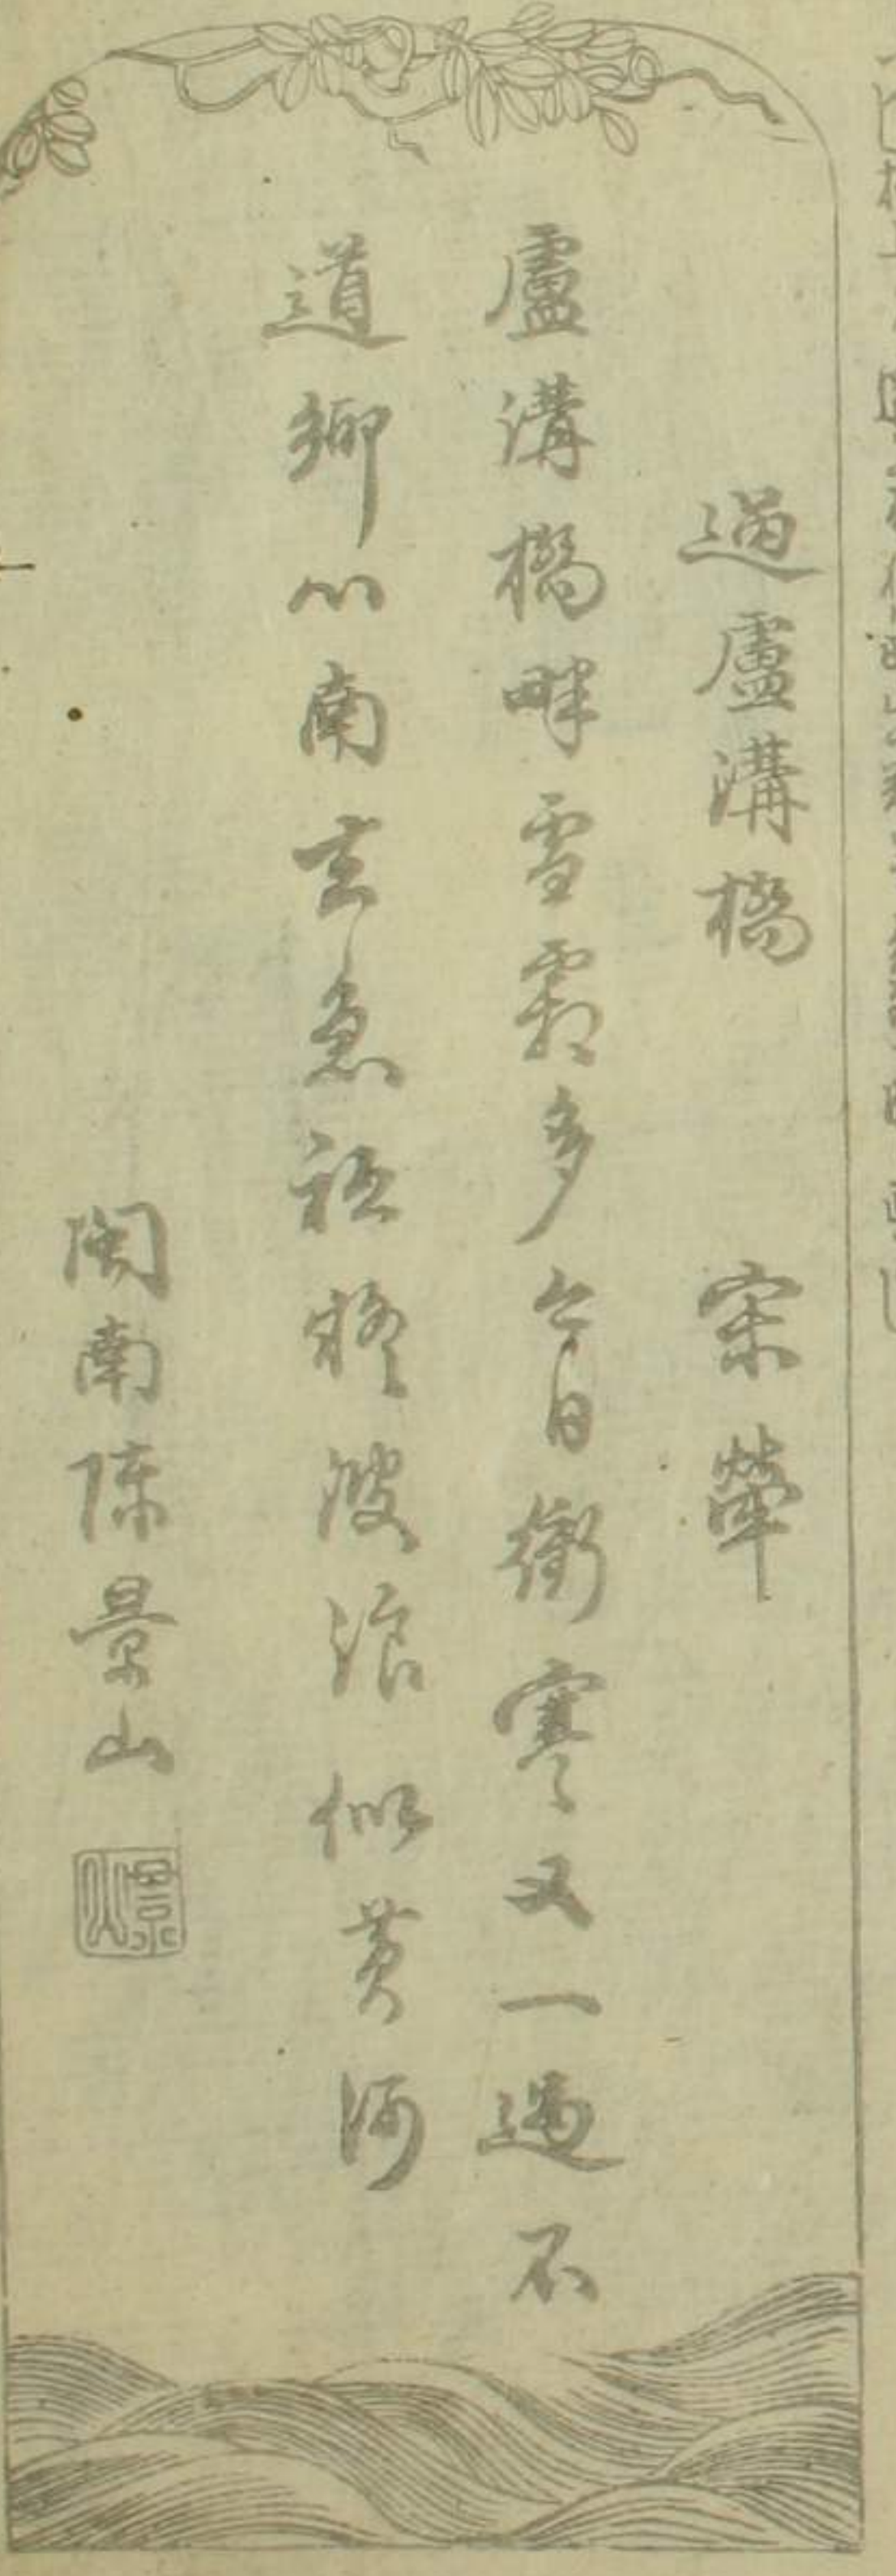 過盧溝橋　宋犖
盧溝橋畔雪霜多今日衝寒又一過不
道鄉心南去急祗疑波浪似黃河
閩南陳景山